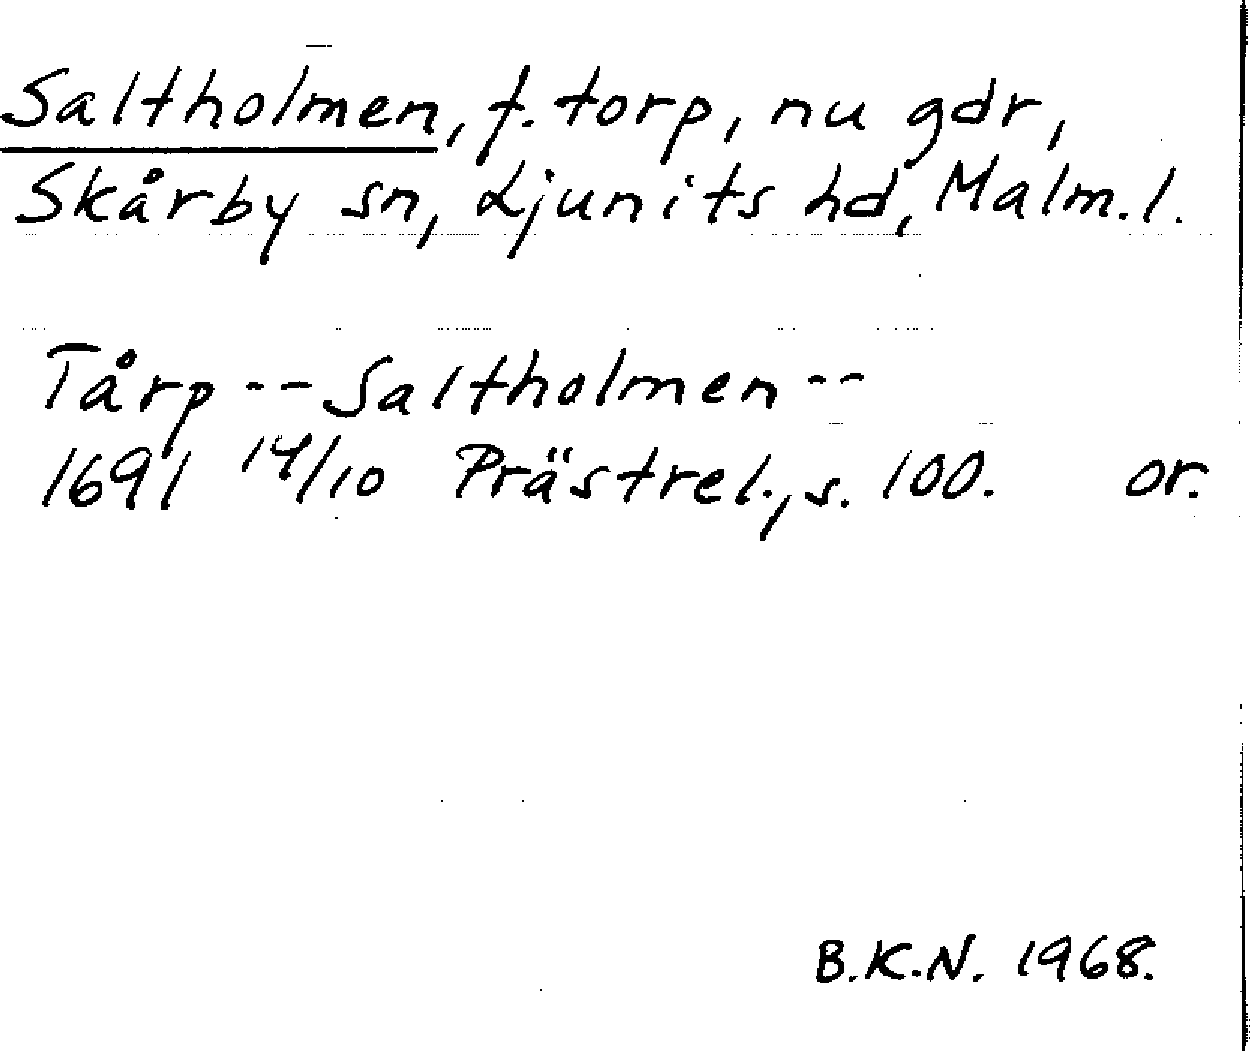 Saltholmen, f. torp, nu gdr,
Skårby sn, Ljunits hd, Malm. l.
Tårp -- Saltholmen --
1691 14/10 Prästrel., s. 100. or.
B.K.N. 1968.